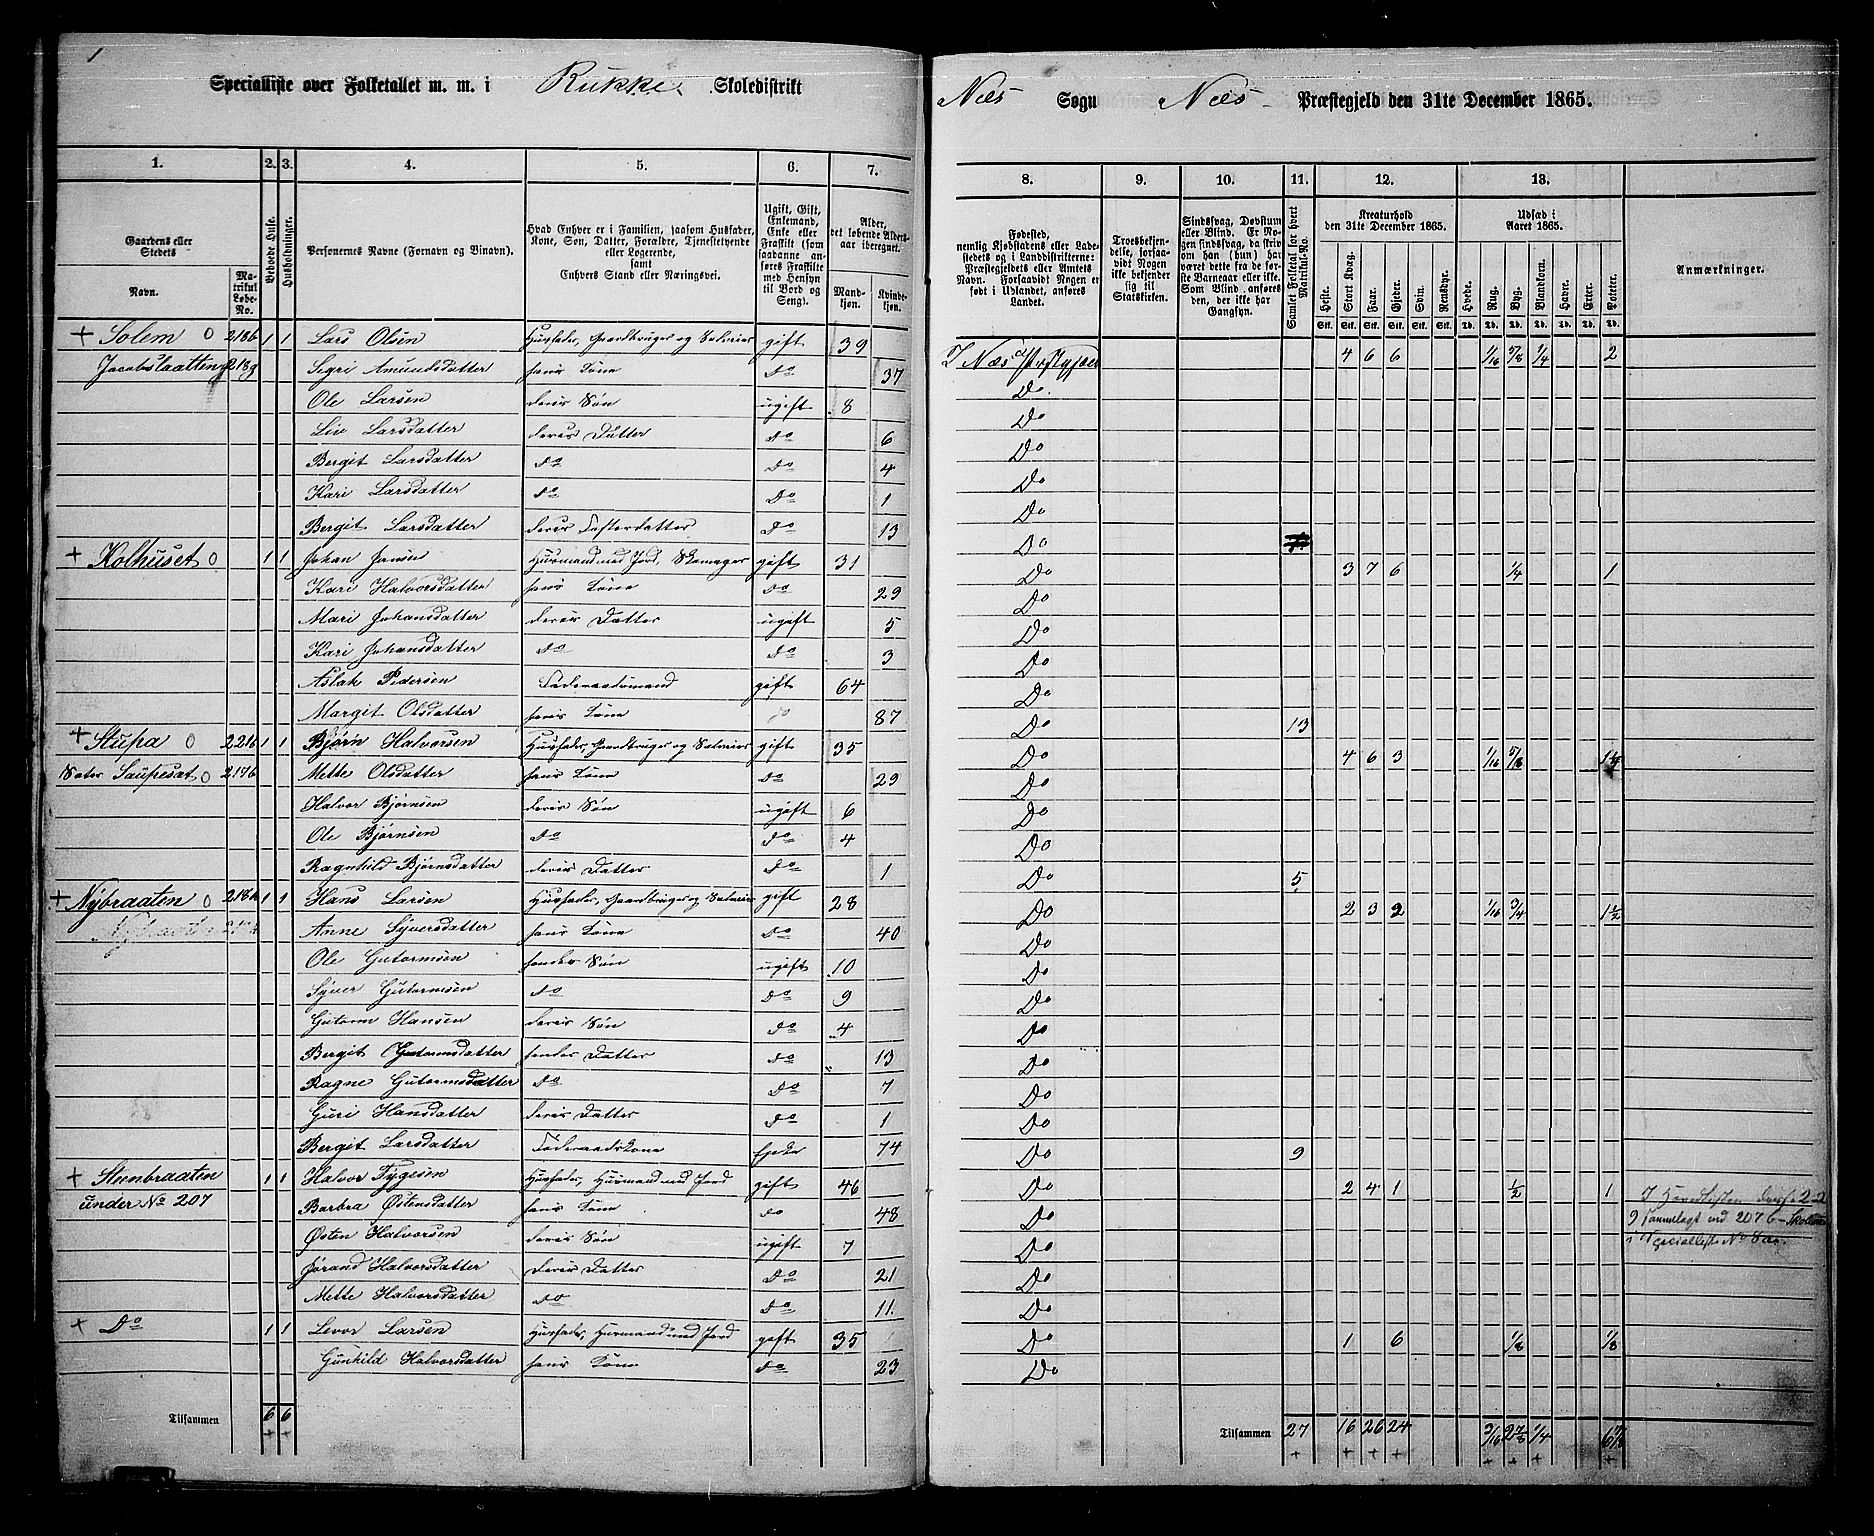 1
Specialliste over Folketallet m. m. i Rukke Skoledistrikt
Næs Sogn Næs Præstegjeld den 31te December 1865.
1. 2. 3. 4. 5. 6. 7. 8. 9. 10. 11. 12. 13.
Gaardens eller Stedets
Navn.
Matrikul Løbe-No.
Beboede Huse.
Husholdninger.
Personernes Navne (Fornavn og Binavn).
Hvad Enhver er i Familien, saasom Husfader, Kone, Søn, Datter, Forældre, Tjenestetyende eller Logerende, samt Enhvers Stand eller Næringsvei.
Ugift, Gift, Enkemand, Enke eller Fraskilt (som saadanne anføres Fraskilte med Hensyn til Bord og Seng).
Alder, det løbende Aldersaar iberegnet.
Mandkjøn. Kvindekjøn.
Fødested, nemlig Kjøbstadens eller Ladestedets og i Landdistrikterne: Præstegjeldets eller Amtets Navn. Forsaavidt Nogen er født i Udlandet, anføres Landet.
Troesbekjendelse, forsaavidt Nogen ikke bekjender sig til Statskirken.
Sindssvag, Døvstum eller Blind. Er Nogen sindssvag, da skrives om han (hun) har været dette fra de første Barneaar eller ikke. Som Blind anføres den, der ikke har Gangsyn.
Samlet Folketal for hvert Matrikul-No.
Kreaturhold den 31te December 1865.
Heste. Stort Kvæg. Faar. Gjeder. Svin. Rensdyr.
Udsæd i Aaret 1865.
Hvede. Rug. Byg. Blandkorn. Havre. Erter. Poteter.
Anmærkninger.
+ Solem o 218b 1 1 Lars Olsen Husfader, Gaardbruger og Selveier gift 39 I Næs Præstegjeld 4 6 6 1/16 5/8 1/4 2
Jacobslaatten 218g Sigri Amundsdatter hans Kone Do 37 Do
Ole Larsen deres Søn ugift 8 Do
Liv Larsdatter deres Datter Do 6 Do
Bergit Larsdatter Do Do 4 Do
Kari Larsdatter Do Do 1 Do
Bergit Larsdatter deres Fosterdatter Do 13 Do
+ Kolhuset o 1 1 Johan Jensen Huusmand med Jord, Skomager gift 31 Do 3 7 6 1/4 1
Kari Halvorsdatter hans Kone Do 29 Do
Mari Johansdatter deres Datter ugift 5 Do
Kari Johansdatter Do Do 3 Do
Aslak Pedersen Føderaadsmand gift 64 Do
Margit Olsdatter hans Kone Do 87 Do 13
+ Stupa o 221b 1 1 Bjørn Halvorsen Husfader, Gaardbruger og Selveier gift 35 Do 4 6 3 1/16 5/8
Sæter Saupeset o 217b Mette Olsdatter hans Kone Do 29 Do
Halvor Bjørnsen deres Søn ugift 6 Do
Ole Bjørnsen Do Do 4 Do
Ragnhild Bjørnsdatter deres Datter Do 1 Do 5
+ Nybraaten o 218k 1 1 Hans Larsen Husfader, Gaardbruger og Selveier gift 28 Do 2 3 2 1/16 3/4 1 1/2
Anne Syversdatter hans Kone Do 40 Do
Ole Gutormsen hendes Søn ugift 10 Do
Syver Gutormsen Do Do 9 Do
Gutorm Hansen deres Søn Do 4 Do
Bergit Gutormsdatter hendes Datter Do 13 Do
Ragne Gutormsdatter Do Do 7 Do
Guri Hansdatter deres Datter Do 1 Do
Bergit Larsdatter Føderaadskone Enke 74 Do 9
+ Steenbraaten 1 1 Halvor Tygesen Husfader, Huusmand med Jord gift 46 Do 2 4 1 1/2 1
under No 207 Barbra Østensdatter hans Kone Do 48 Do
Østen Halvorsen deres Søn ugift 7 Do
Jørand Halvorsdatter deres Datter Do 21 Do
Mette Halvorsdatter Do Do 11 Do
+ Do 1 1 Levor Larsen Husfader, Huusmand med Jord gift 35 Do 1 6 1/8 1/8
Gunhild Halvorsdatter hans Kone Do 23 Do
I Hovedlisten
sammelagt med 207 b
i Specialliste No 8
Tilsammen 6 6
Tilsammen 27 16 26 24 3/16 2 7/8 1/4